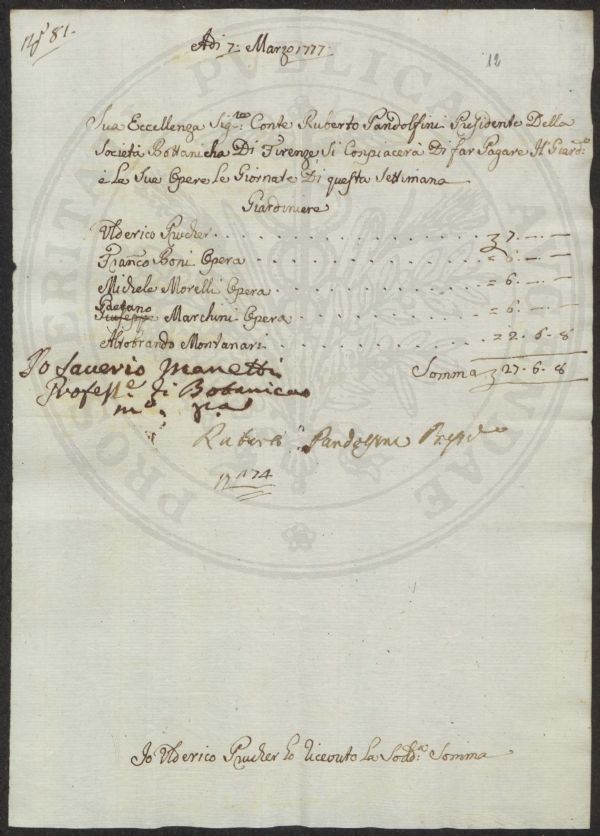 N.º 81.
12
Adi 7: Marzo 1777:
Sua Eccellenza Sig.re Conte Ruberto Pandolfini Presidente Della
Società Bottanicha Di Firenze, Si Conpiacera Di far Pagare Il Giard.
e La Sue Opere Le Giornate Di questa Settimana
Giardiniere
Ulderico Prucher 7. — —
Franco Boni Opera = 6. — —
Michele Morelli Opera = 6. — —
Gaetano
Giuseppe Marchini Opera = 6. — —
Aldobrando Montanari = 2. 6. 8
Somma 27. 6. 8
Io Saverio Manetti
Profess.e di Botanica
m.o p.a
Ruberto Pandolfini Presid.e
N.º 74
Io Ulderico Prucher Ho Riceuto La Sodd.a Somma
PUBLICAE
PROSPERITATI
AUGENDAE